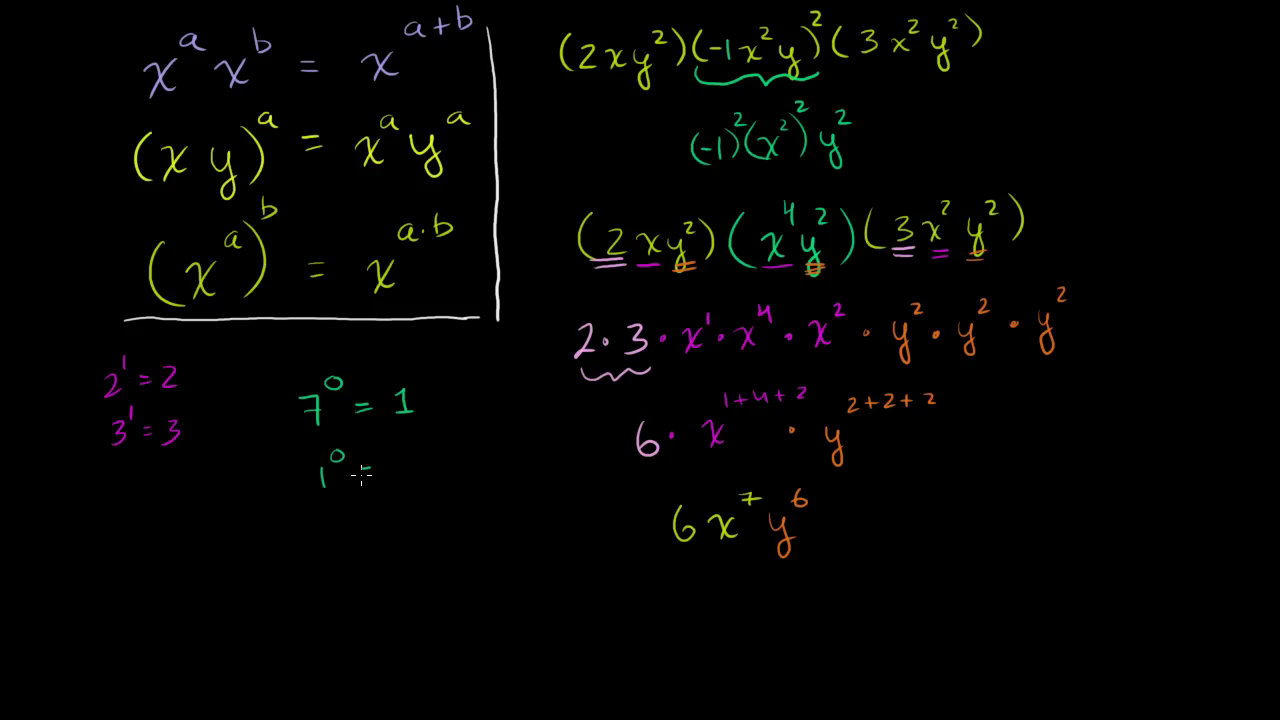 xᵃ xᵇ = xᵃ⁺ᵇ
(x y)ᵃ = xᵃ yᵃ
(xᵃ)ᵇ = xᵃ·ᵇ
2¹ = 2
3¹ = 3
7⁰ = 1
1⁰ =
(2xy²)(-1x²y)²(3x²y²)
(-1)²(x²)²y²
(2xy²)(x⁴y²)(3x²y²)
2·3·x¹·x⁴·x²·y²·y²·y²
6·x¹⁺⁴⁺²·y²⁺²⁺²
6x⁷y⁶